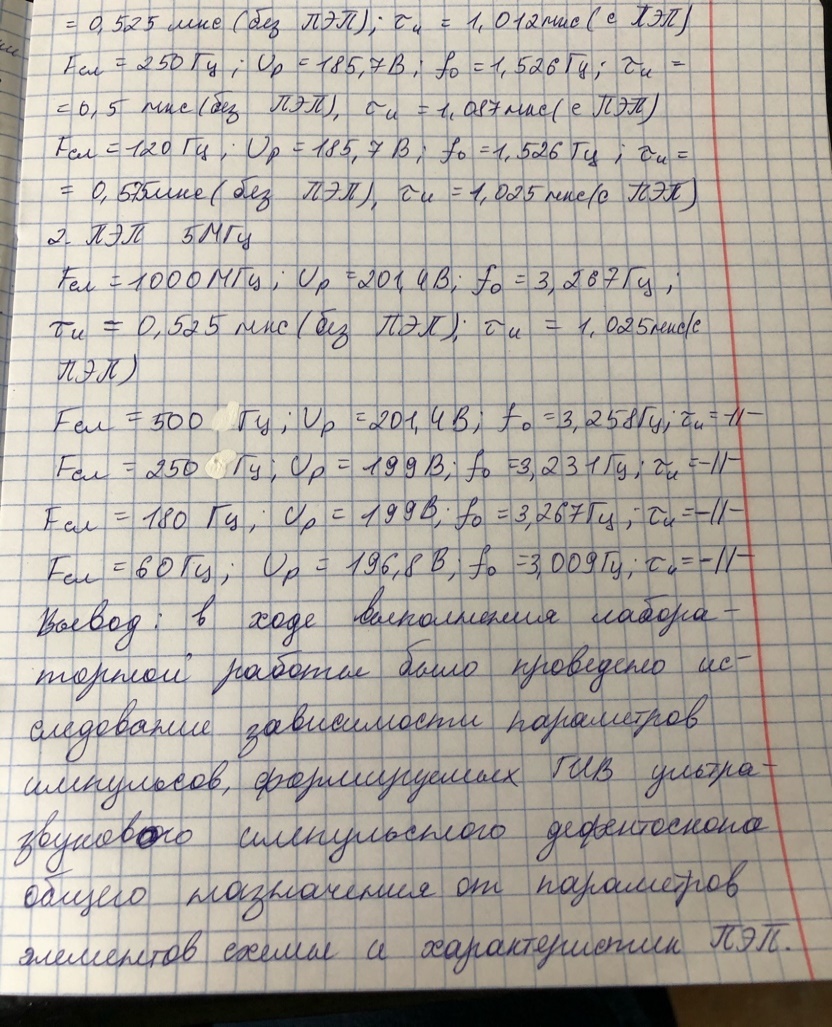 = 0,525 мкс (без ПЭП); τи = 1,012мкс (с ПЭП)
Fсл = 250 Гц; Uр = 185,7В; f₀ = 1,526Гц; τи =
= 0,5 мкс (без ПЭП), τи = 1,087мкс (с ПЭП)
Fсл = 120 Гц; Uр = 185,7 В; f₀ = 1,526 Гц; τи =
= 0,575мкс (без ПЭП), τи = 1,025 мкс (с ПЭП)
2. ПЭП 5МГц
Fсл = 1000МГц; Uр = 201,4В; f₀ = 3,267Гц;
τи = 0,525 мкс (без ПЭП); τи = 1,025мкс(с
ПЭП)
Fсл = 500 Гц; Uр = 201,4В; f₀ = 3,258Гц; τи = -||-
Fсл = 250 Гц; Uр = 199В; f₀ = 3,231Гц; τи = -||-
Fсл = 180 Гц; Uр = 199В; f₀ = 3,267Гц; τи = -||-
Fсл = 60 Гц; Uр = 196,8 В; f₀ = 3,009Гц; τи = -||-
Вывод: в ходе выполнения лабора-
торной работы было проведено ис-
следование зависимости параметров
импульсов, формируемых ГИВ ультра-
звукового импульсного дефектоскопа
общего назначения от параметров
элементов схемы и характеристик ПЭП.